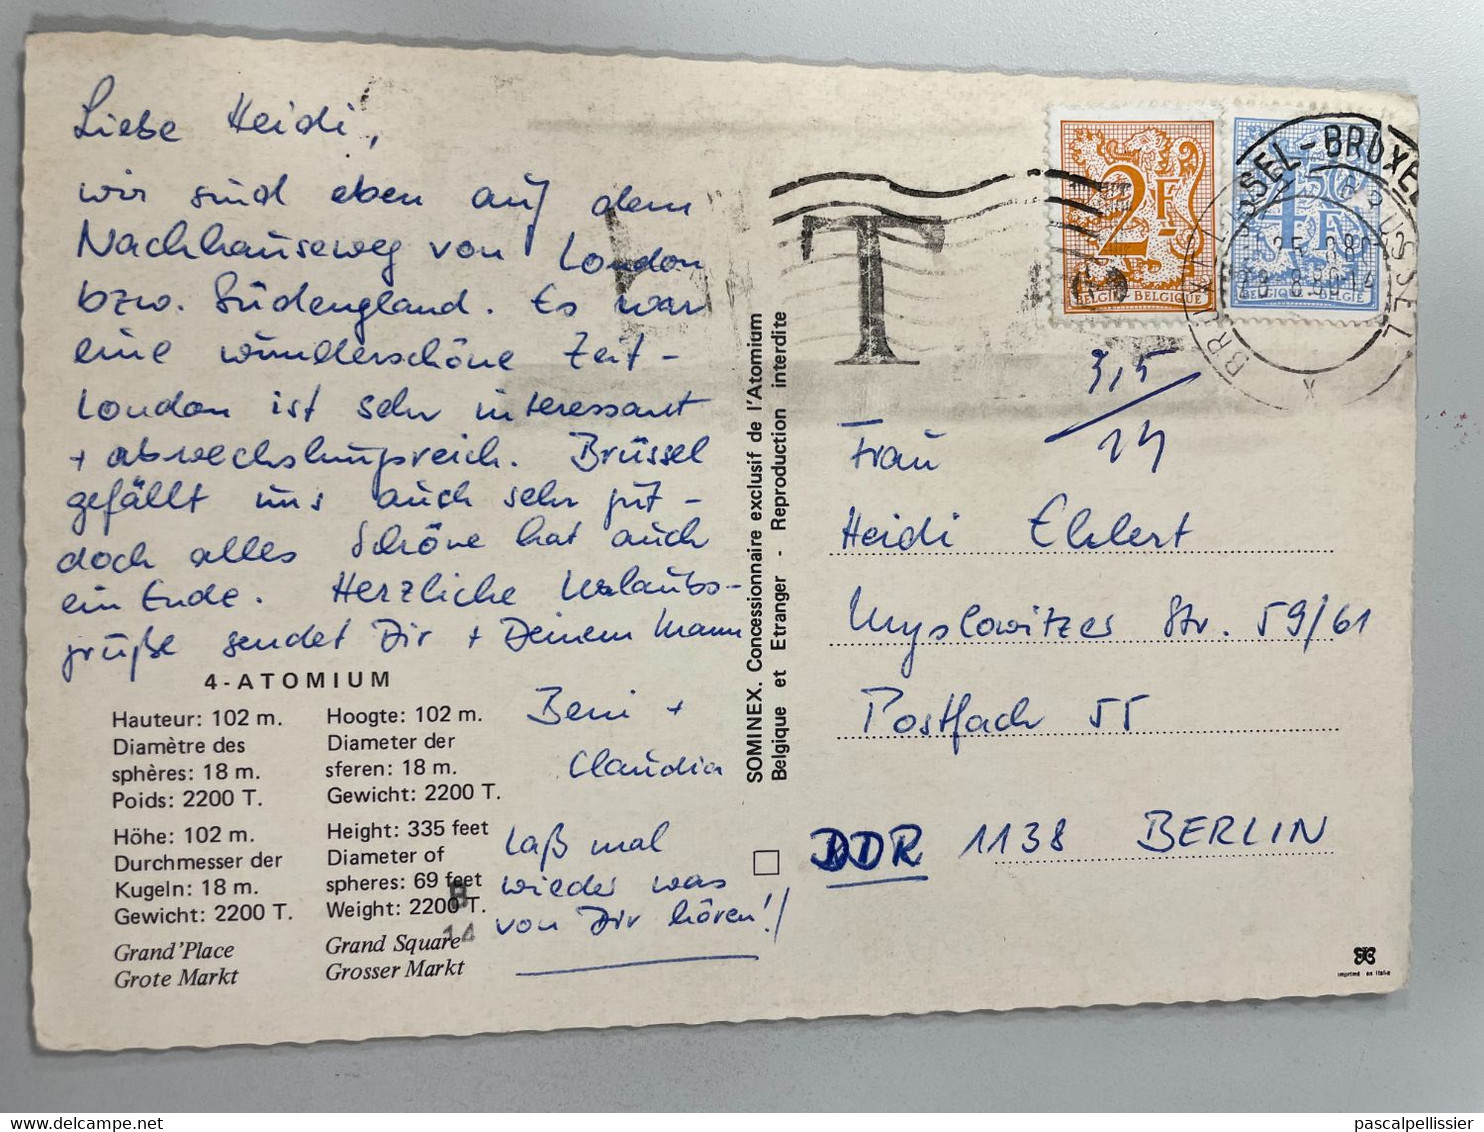 Liebe Heidi,
wir sind eben auf dem
Nachhauseweg von London
bzw. Südengland. Es war
eine wunderschöne Zeit -
London ist sehr interessant
+ abwechslungsreich. Brüssel
gefällt uns auch sehr gut -
doch alles Schöne hat auch
ein Ende. Herzliche Urlaubs-
grüße sendet Dir + Deinem Mann
Beni +
Claudia
Laß mal
wieder was
von Dir hören!
4-ATOMIUM
Hauteur: 102 m.
Diamètre des
sphères: 18 m.
Poids: 2200 T.
Hoogte: 102 m.
Diameter der
sferen: 18 m.
Gewicht: 2200 T.
Höhe: 102 m.
Durchmesser der
Kugeln: 18 m.
Gewicht: 2200 T.
Height: 335 feet
Diameter of
spheres: 69 feet
Weight: 2200 T.
Grand'Place
Grote Markt
Grand Square
Grosser Markt
14
SOMINEX. Concessionnaire exclusif de l'Atomium
Belgique et Etranger - Reproduction interdite
T
2F
BELGIË BELGIQUE
4F50
BELGIQUE BELGIË
3,5/14
Frau
Heidi Ehlert
Myslowitzer Str. 59/61
Postfach 55
DDR 1138 BERLIN
imprimé en Italie
pascalpellissier